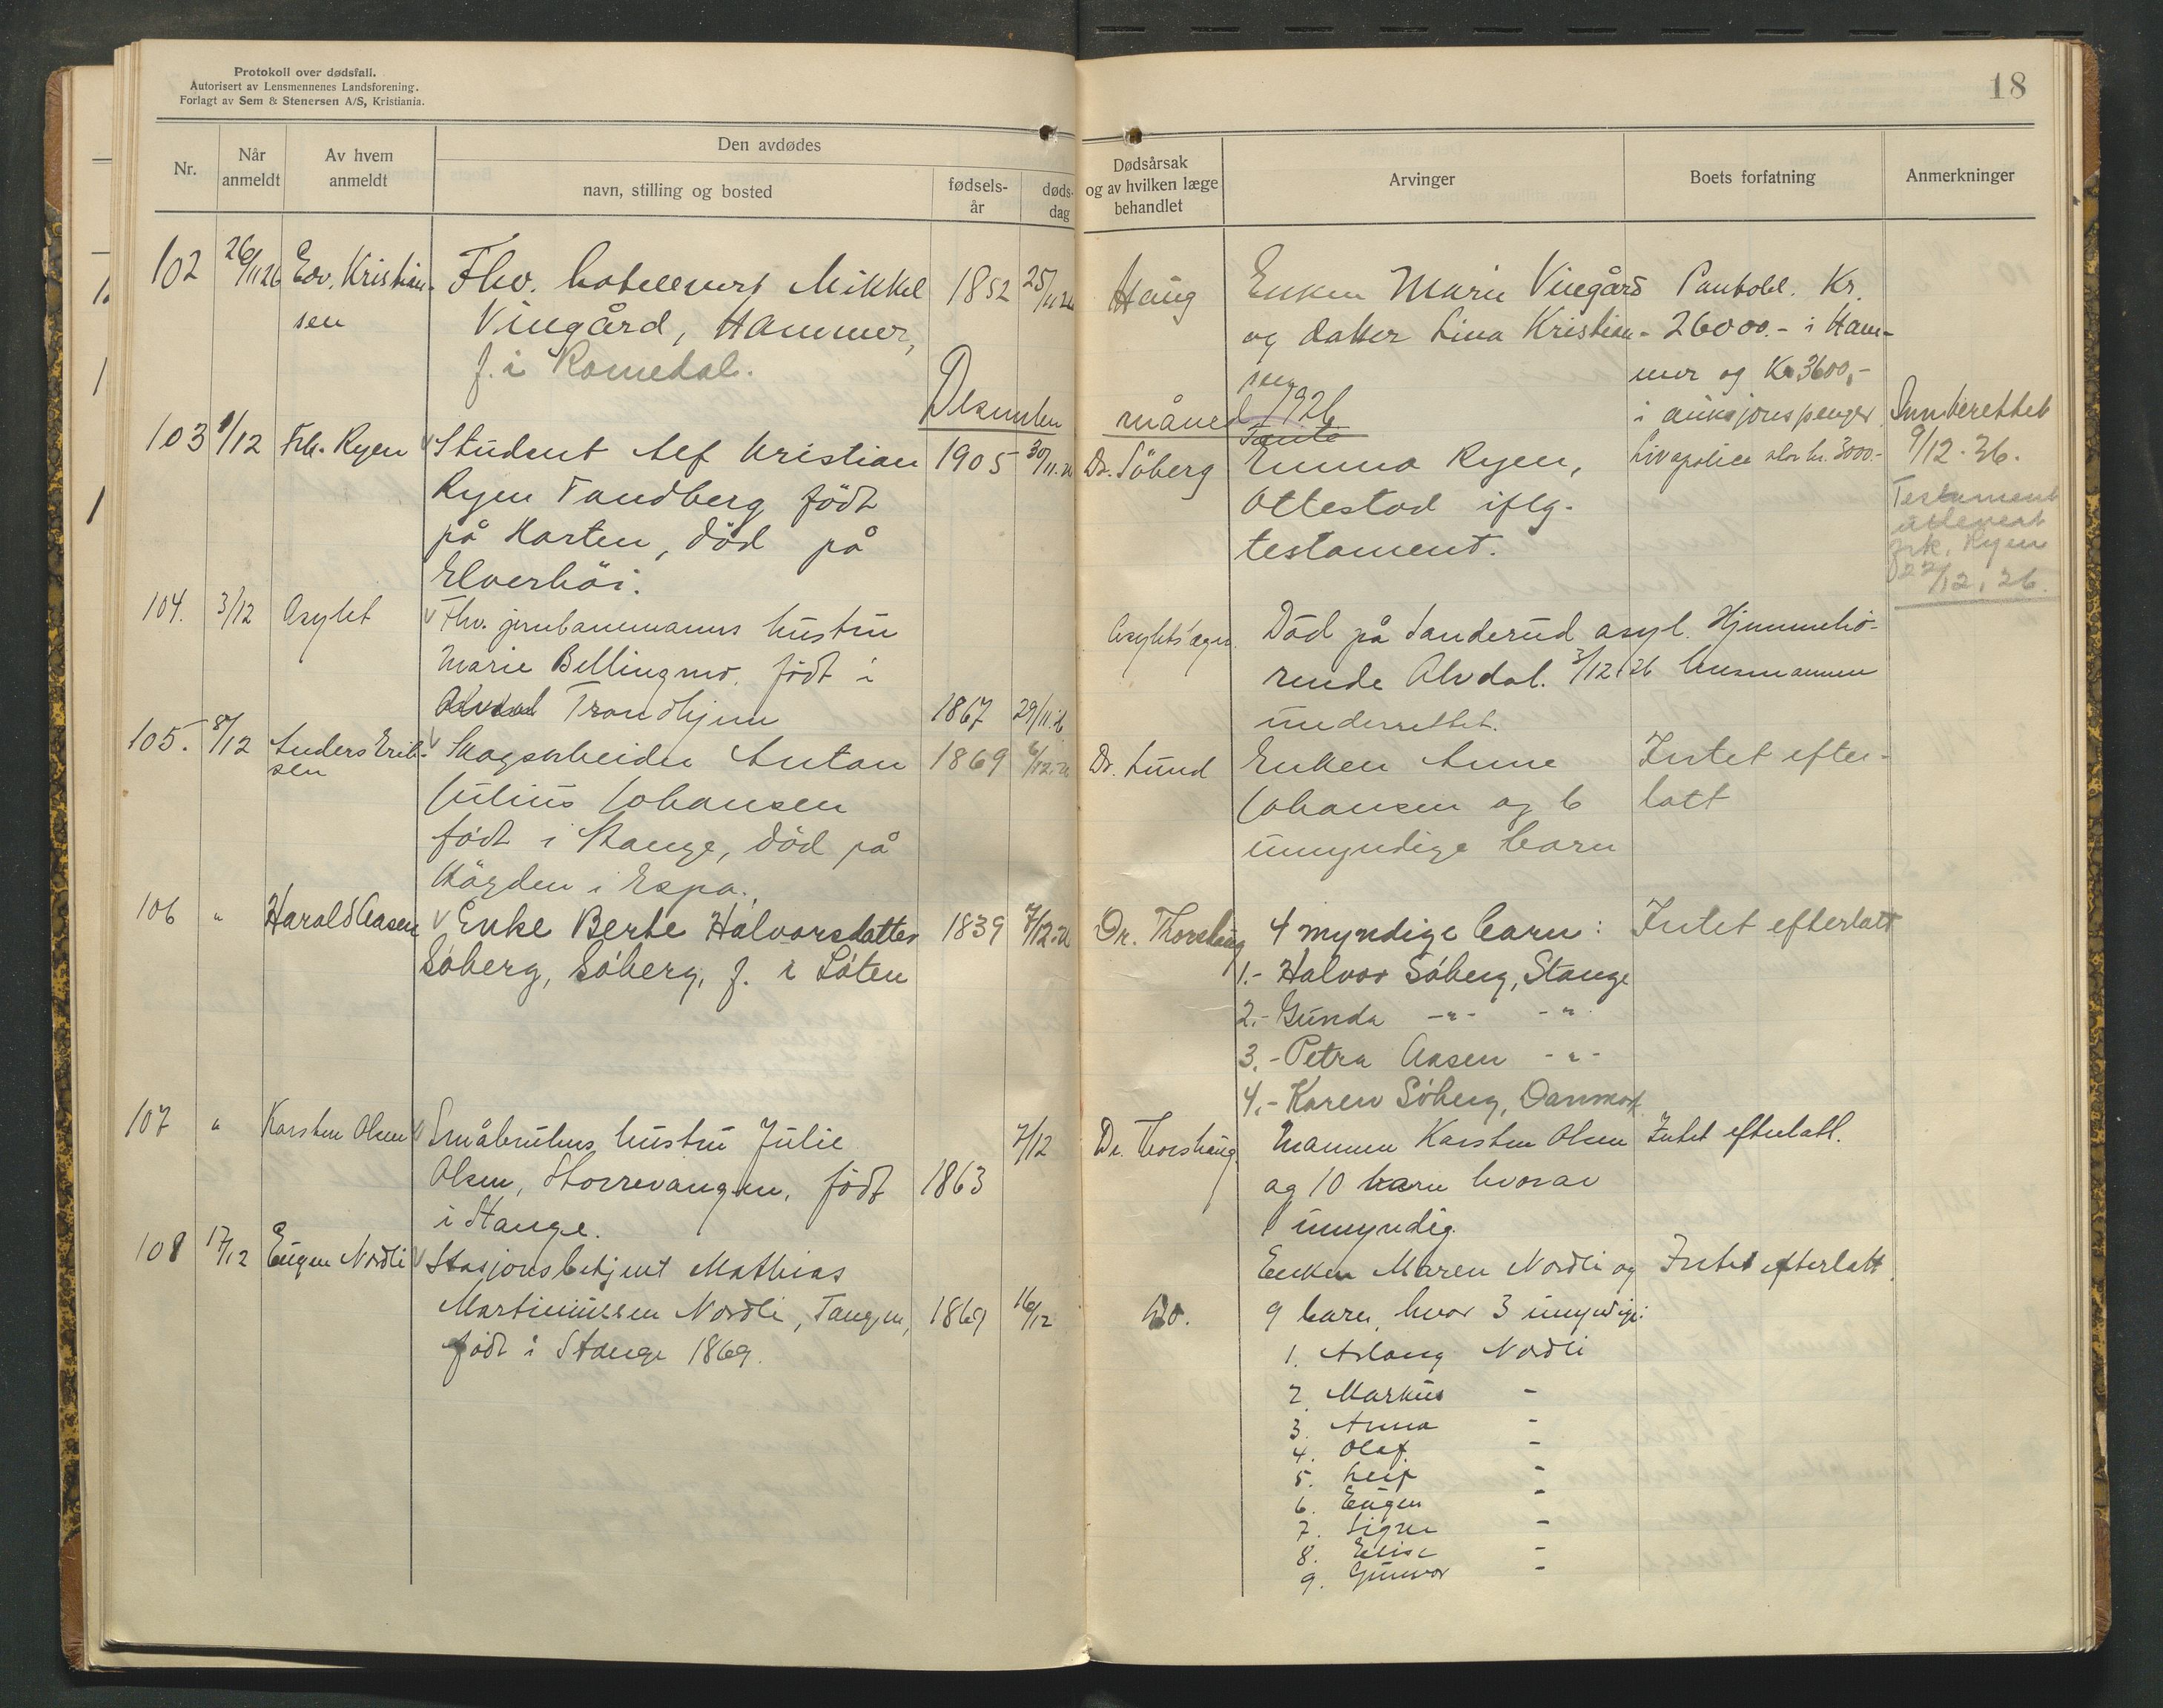 Protokoll over dødsfall.
Autorisert av Lensmennenes Landsforening.
Forlagt av Sem & Stenersen A/S, Kristiania.
18
Nr.
Når anmeldt
Av hvem anmeldt
Den avdødes
navn, stilling og bosted
fødsels-år
døds-dag
Dødsårsak og av hvilken læge behandlet
Arvinger
Boets forfatning
Anmerkninger
102
26/11 26
Edv. Kristian-
sen
Fhv. hotellvert Mikkel
Vingård, Hammer,
f. i Romedal.
1852
25/11 26
Haug
Enken Marie Vingård
og datter Lina Kristian-
sen
Pantobl. Kr.
26000.- i Ham-
mer og Kr 3600,-
i auksjonspenger
Desember
måned 1926
103
1/12
Frk. Ryen
Student Alf Kristian
Ryen Tandberg född
på Karten, död på
Elverhöi.
1905
30/11. 26
Dr. Söberg
Tante
Emma Ryen,
Ottestad iflg.
testament.
Livspolice stor kr. 3000.-
Innberettet
9/12. 26.
Testament
utlevert
frk. Ryen
22/12. 26.
104.
3/12
Asylet
Fhv. jernbanemanns hustru
Marie Bellingmo. födt i
Alvdal Trondhjem
1867
29/11. 26
Asylets læge.
Död på Sanderud asyl. Hjemmehö-
rende Alvdal. 3/12 26 husmannen
underrettet.
105.
8/12
Anders Erik-
sen
Skogsarbeider Anton
Julius Johansen
födt i Stange, död på
Högden i Espa.
1869
6/12. 26
Dr. Lund
Enken Anne
Johansen og 6
umyndige barn
Intet efter-
latt
106
"
Harald Aasen
Enke Berte Halvorsdatter
Söberg, Söberg, f. i Löten
1839
7/12. 26
Dr. Thorshaug
4 myndige barn:
1.- Halvor Söberg, Stange
2.- Gunda -"- -"-
3.- Petra Aasen -"-
4.- Karen Söberg, Danmark
Intet efterlatt
107
"
Karsten Olsen
Småbrukers hustru Julie
Olsen, Storrevangen, födt
i Stange.
1863
7/12
Dr. Thorshaug.
Mannen Karsten Olsen
og 10 barn hvorav
1 umyndig.
Intet efterlatt.
108
17/12
Eugen Nordli
Stasjonsbetjent Mathias
Martiniussen Nordli, Tangen,
födt i Stange 1869.
1869
16/12
do.
Enken Maren Nordli og
9 barn, hvor 3 umyndige:
1. Aslaug Nordli
2. Markus -
3. Anna -
4. Olaf. -
5. Leif -
6. Eugen -
7. Signe -
8. Elise -
9. Gunvor -
Intet efterlatt.